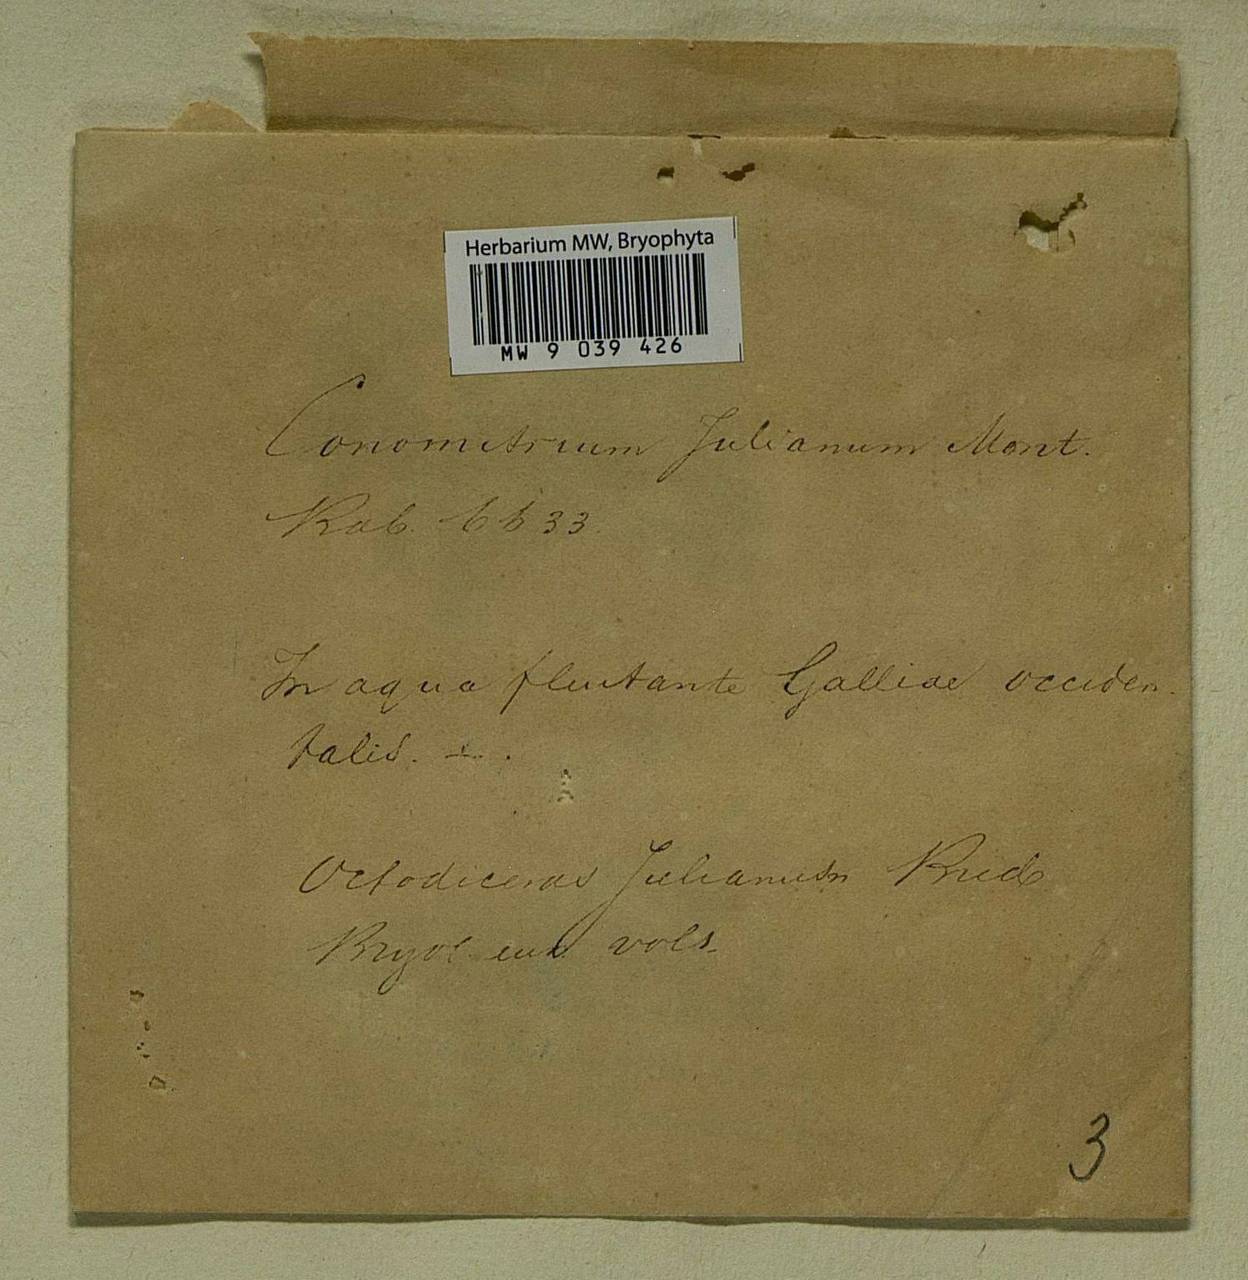 Herbarium MW, Bryophyta
MW 9 039 426
Conomitrium Julianum Mont.
Rab. 6633.
In aqua fluitante Galliae occiden-
talis.
Octodiceras Julianum Brid
Bryol eur vol 1.
3